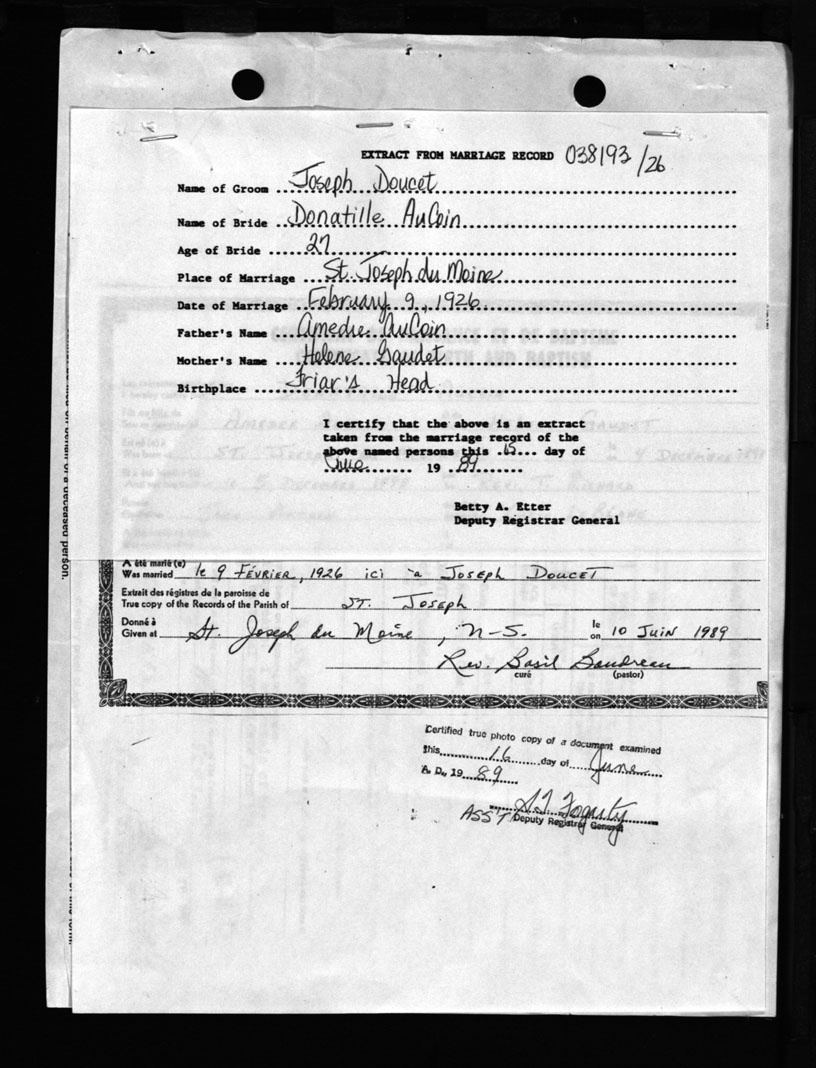 EXTRACT FROM MARRIAGE RECORD 038193/26
Name of Groom Joseph Doucet
Name of Bride Donatille AuCoin
Age of Bride 27
Place of Marriage St. Joseph du Moine
Date of Marriage February 9, 1926
Father's Name Amedie AuCoin
Mother's Name Helene Gaudet
Birthplace Friar's Head
I certify that the above is an extract
taken from the marriage record of the
above named persons this 15 day of
June 19 89
Betty A. Etter
Deputy Registrar General
AMEDEE GAUDET
ST. JOSEPH 4 DECEMBRE
5 DECEMBRE 1898
A été marié(e)
Was married le 9 FÉVRIER, 1926 ici à JOSEPH DOUCET
Extrait des régistres de la paroisse de
True copy of the Records of the Parish of ST. JOSEPH
Donné à
Given at St. Joseph du Moine, N-S. le
on 10 JUIN 1989
Rev. Basil Boudreau
curé (pastor)
Certified true photo copy of a document examined
this 16 day of June
A. D. 19 89
ASS'T Deputy Registrar General
on behalf of a deceased person.